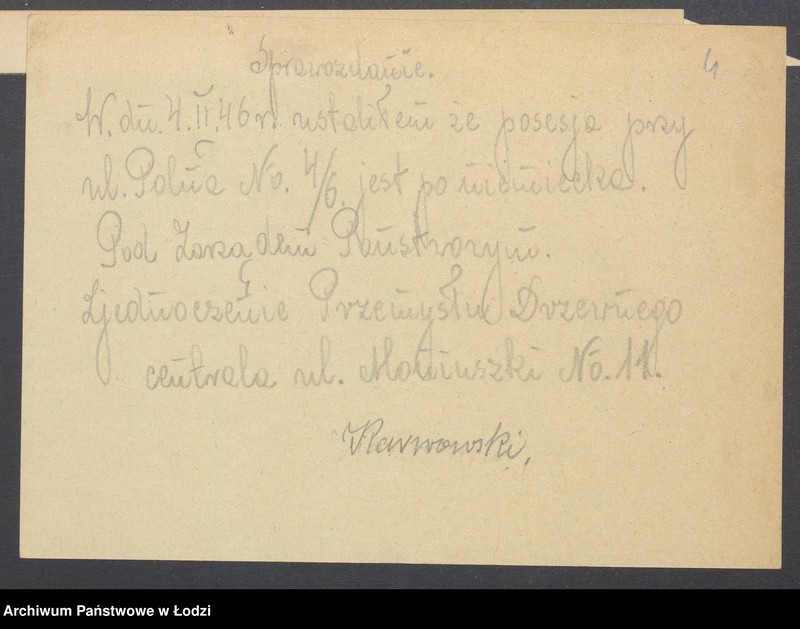 Sprawozdanie.
4
W. dn. 4.II.46 r. ustaliłem że posesja przy
ul. Polna No. 4/6. jest poniemiecka.
Pod Zarządem Państwowym.
Zjednoczenie Przemysłu Drzewnego
centrala ul. Moniuszki No. 11.
Karwowski,
Archiwum Państwowe w Łodzi